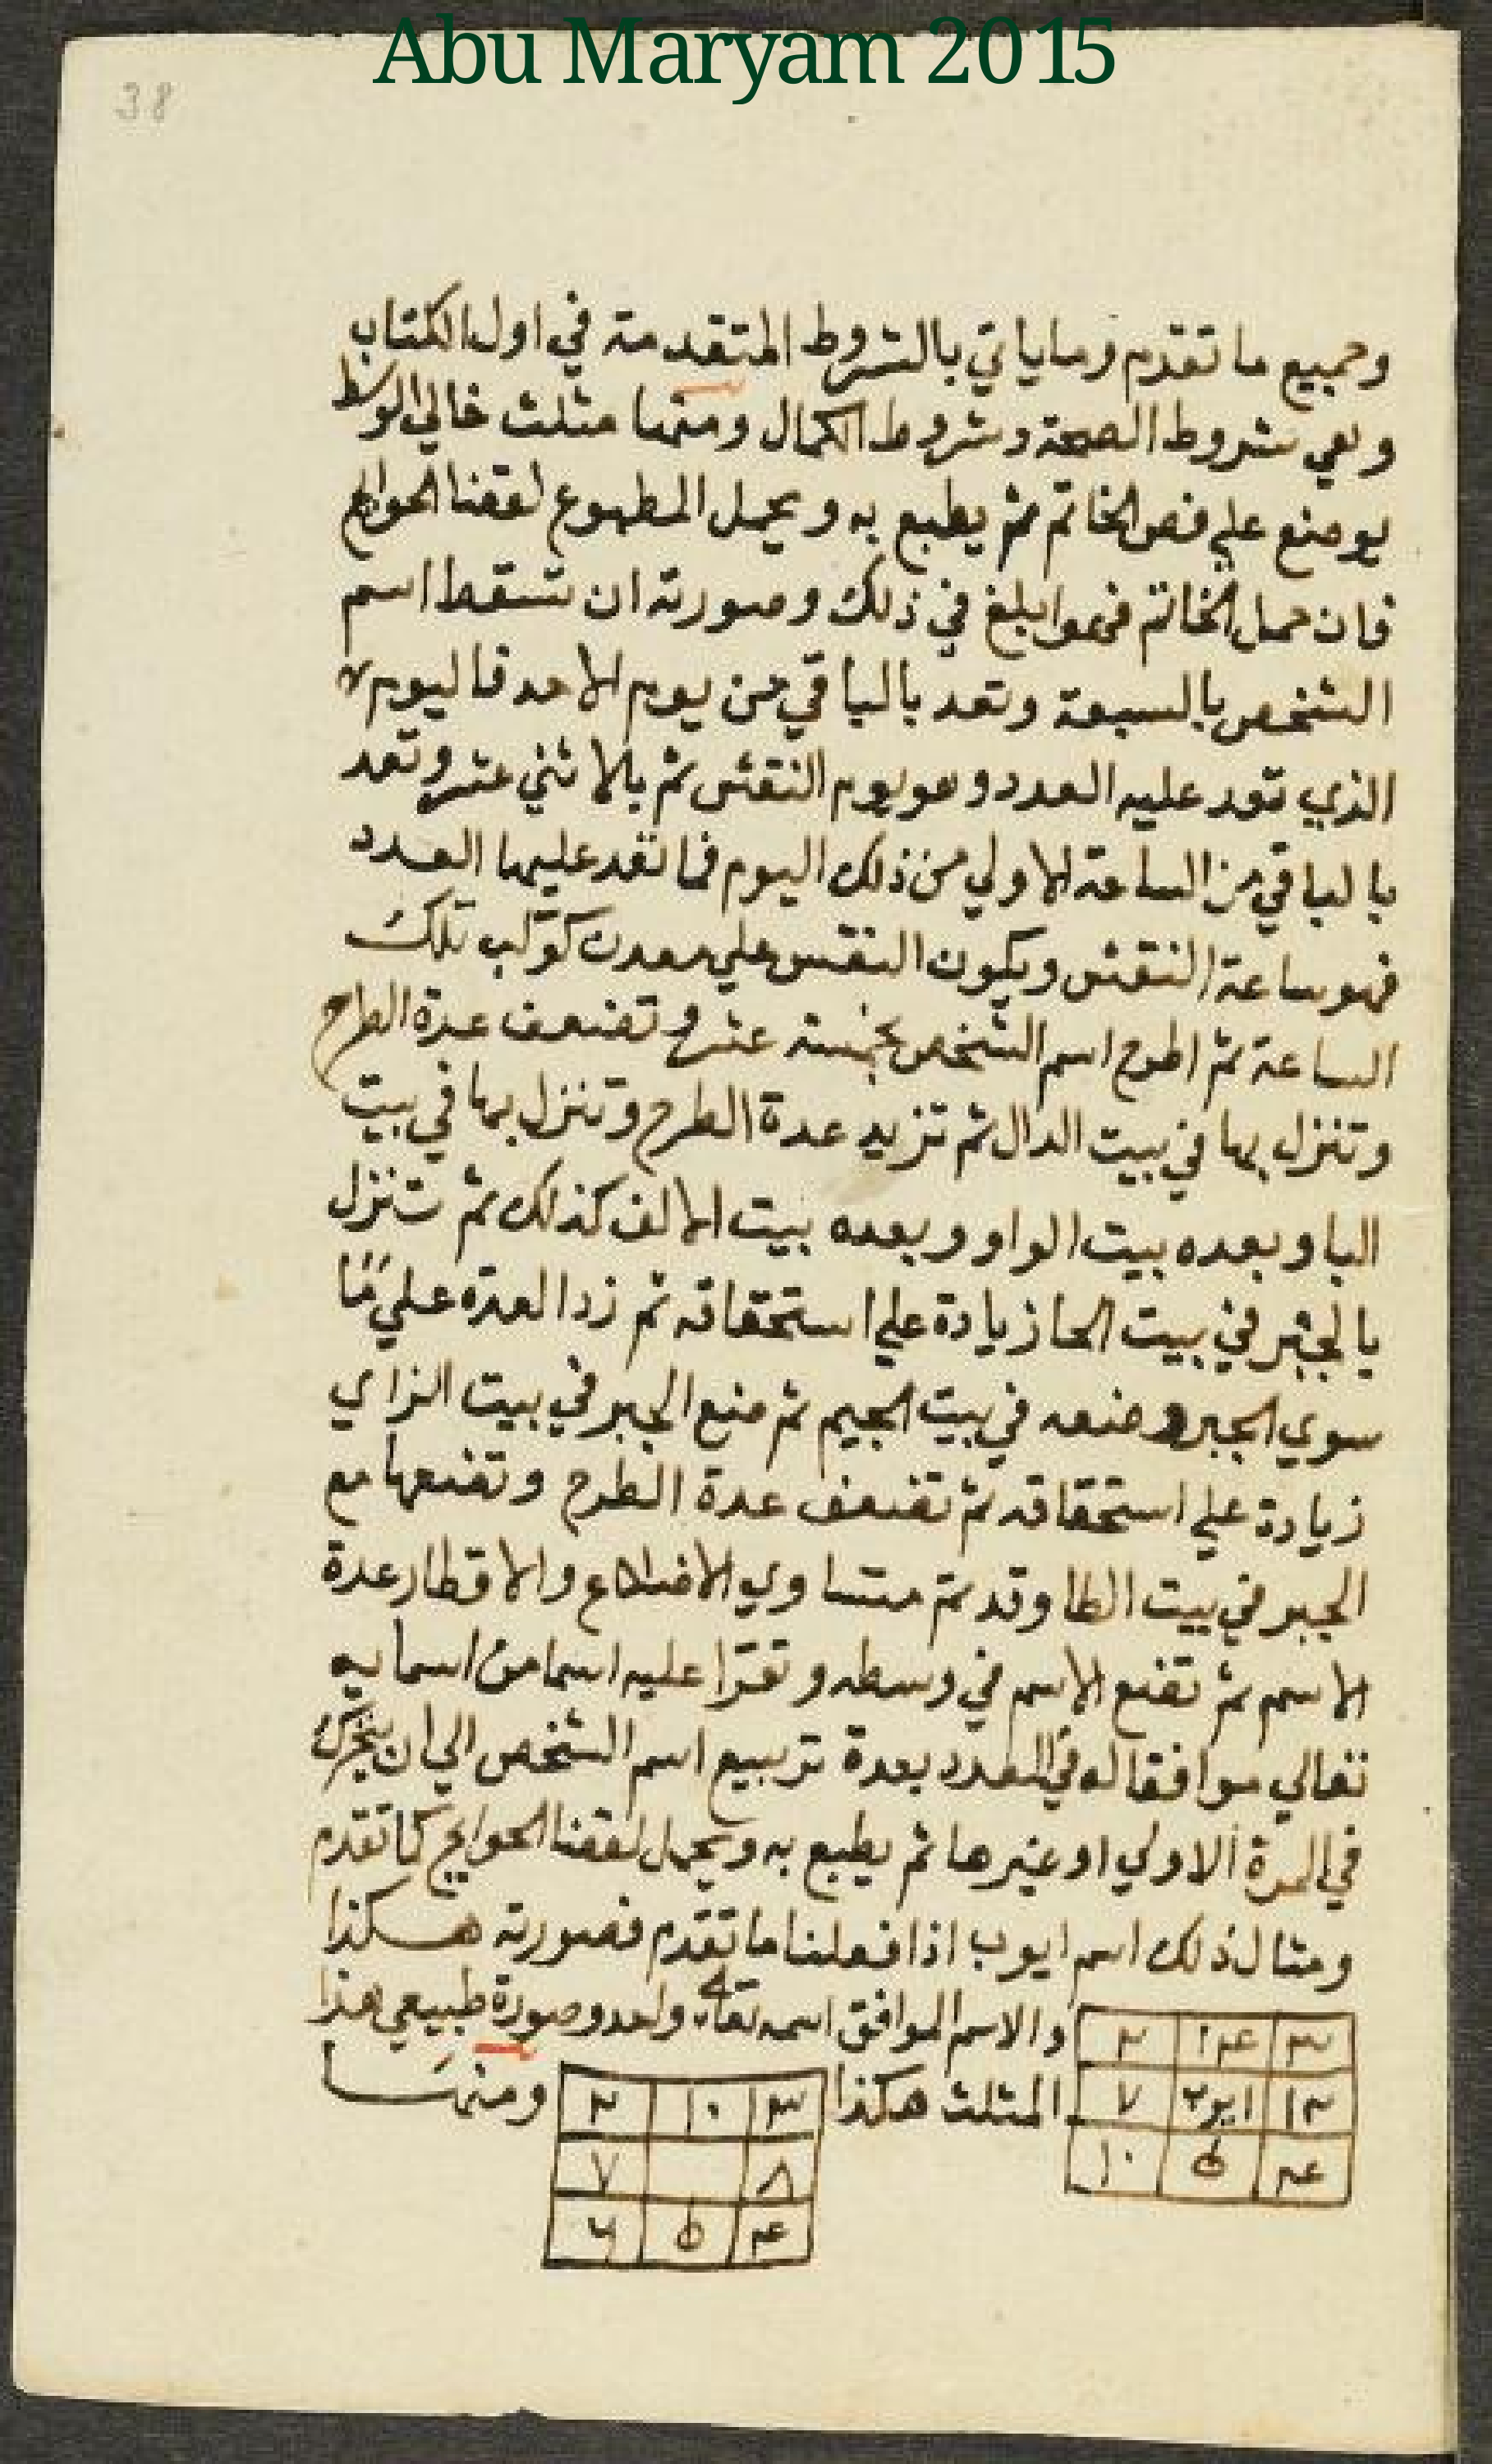 Abu Maryam 2015
38
وجميع ما تقدم وما ياتي بالشروط المتقدمة في اول الكتاب
وهي شروط الصحة وشروط الكمال ومنها مثلث خالي الوسط
يوضع علي فص الخاتم ثم يطبع به ويحمل المطبوع لقضا الحوايج
فان حمل الخاتم فهو ابلغ في ذلك وصورته ان تسقط اسم
الشخص بالسبعة وتعد بالباقي من يوم الاحد فاليوم
الذي تعد عليه العدد وهو يوم النقش ثم بالاثني عشر وتعد
بالباقي من الساعة الاولي من ذلك اليوم فما تعد عليها العدد
فهو ساعة النقش ويكون النقش علي معدن كوكب تلك
الساعة ثم اطرح اسم الشخص بخمسة عشر وتضعف عدة الطرح
وتنزل بها في بيت الدال ثم تزيد عدة الطرح وتنزل بها في بيت
البا وبعده بيت الواو وبعده بيت الالف كذلك ثم تنزل
بالجبر في بيت الحا زيادة علي استحقاقه ثم زد العدة علي ما
سوي الجبر وضعه في بيت الجيم ثم ضع الجبر في بيت الزاي
زيادة علي استحقاقه ثم تضعف عدة الطرح وتضعها مع
الجبر في بيت الطا وقد تم متساوي الاضلاع والاقطار عدة
الاسم ثم تضع الاسم في وسطه وتقرا عليه اسما من اسمايه
تعالي موافقا له في العدد بعدة تربيع اسم الشخص الي ان يتحرك
في المرة الاولي او غيرها ثم يطبع به ويحمل لقضا الحوايج كما تقدم
ومثال ذلك اسم ايوب اذا فعلنا ما تقدم فصورته هكذا
والاسم الموافق اسمه تعالي وصورة طبيعي هذا
المثلث هكذا ومنها
٣ ١٤ ٢
١٢ ايوب ٧
٤ ٥ ١٠
٣ ١٠ ٢
٨ ٧
٤ ٥ ٦